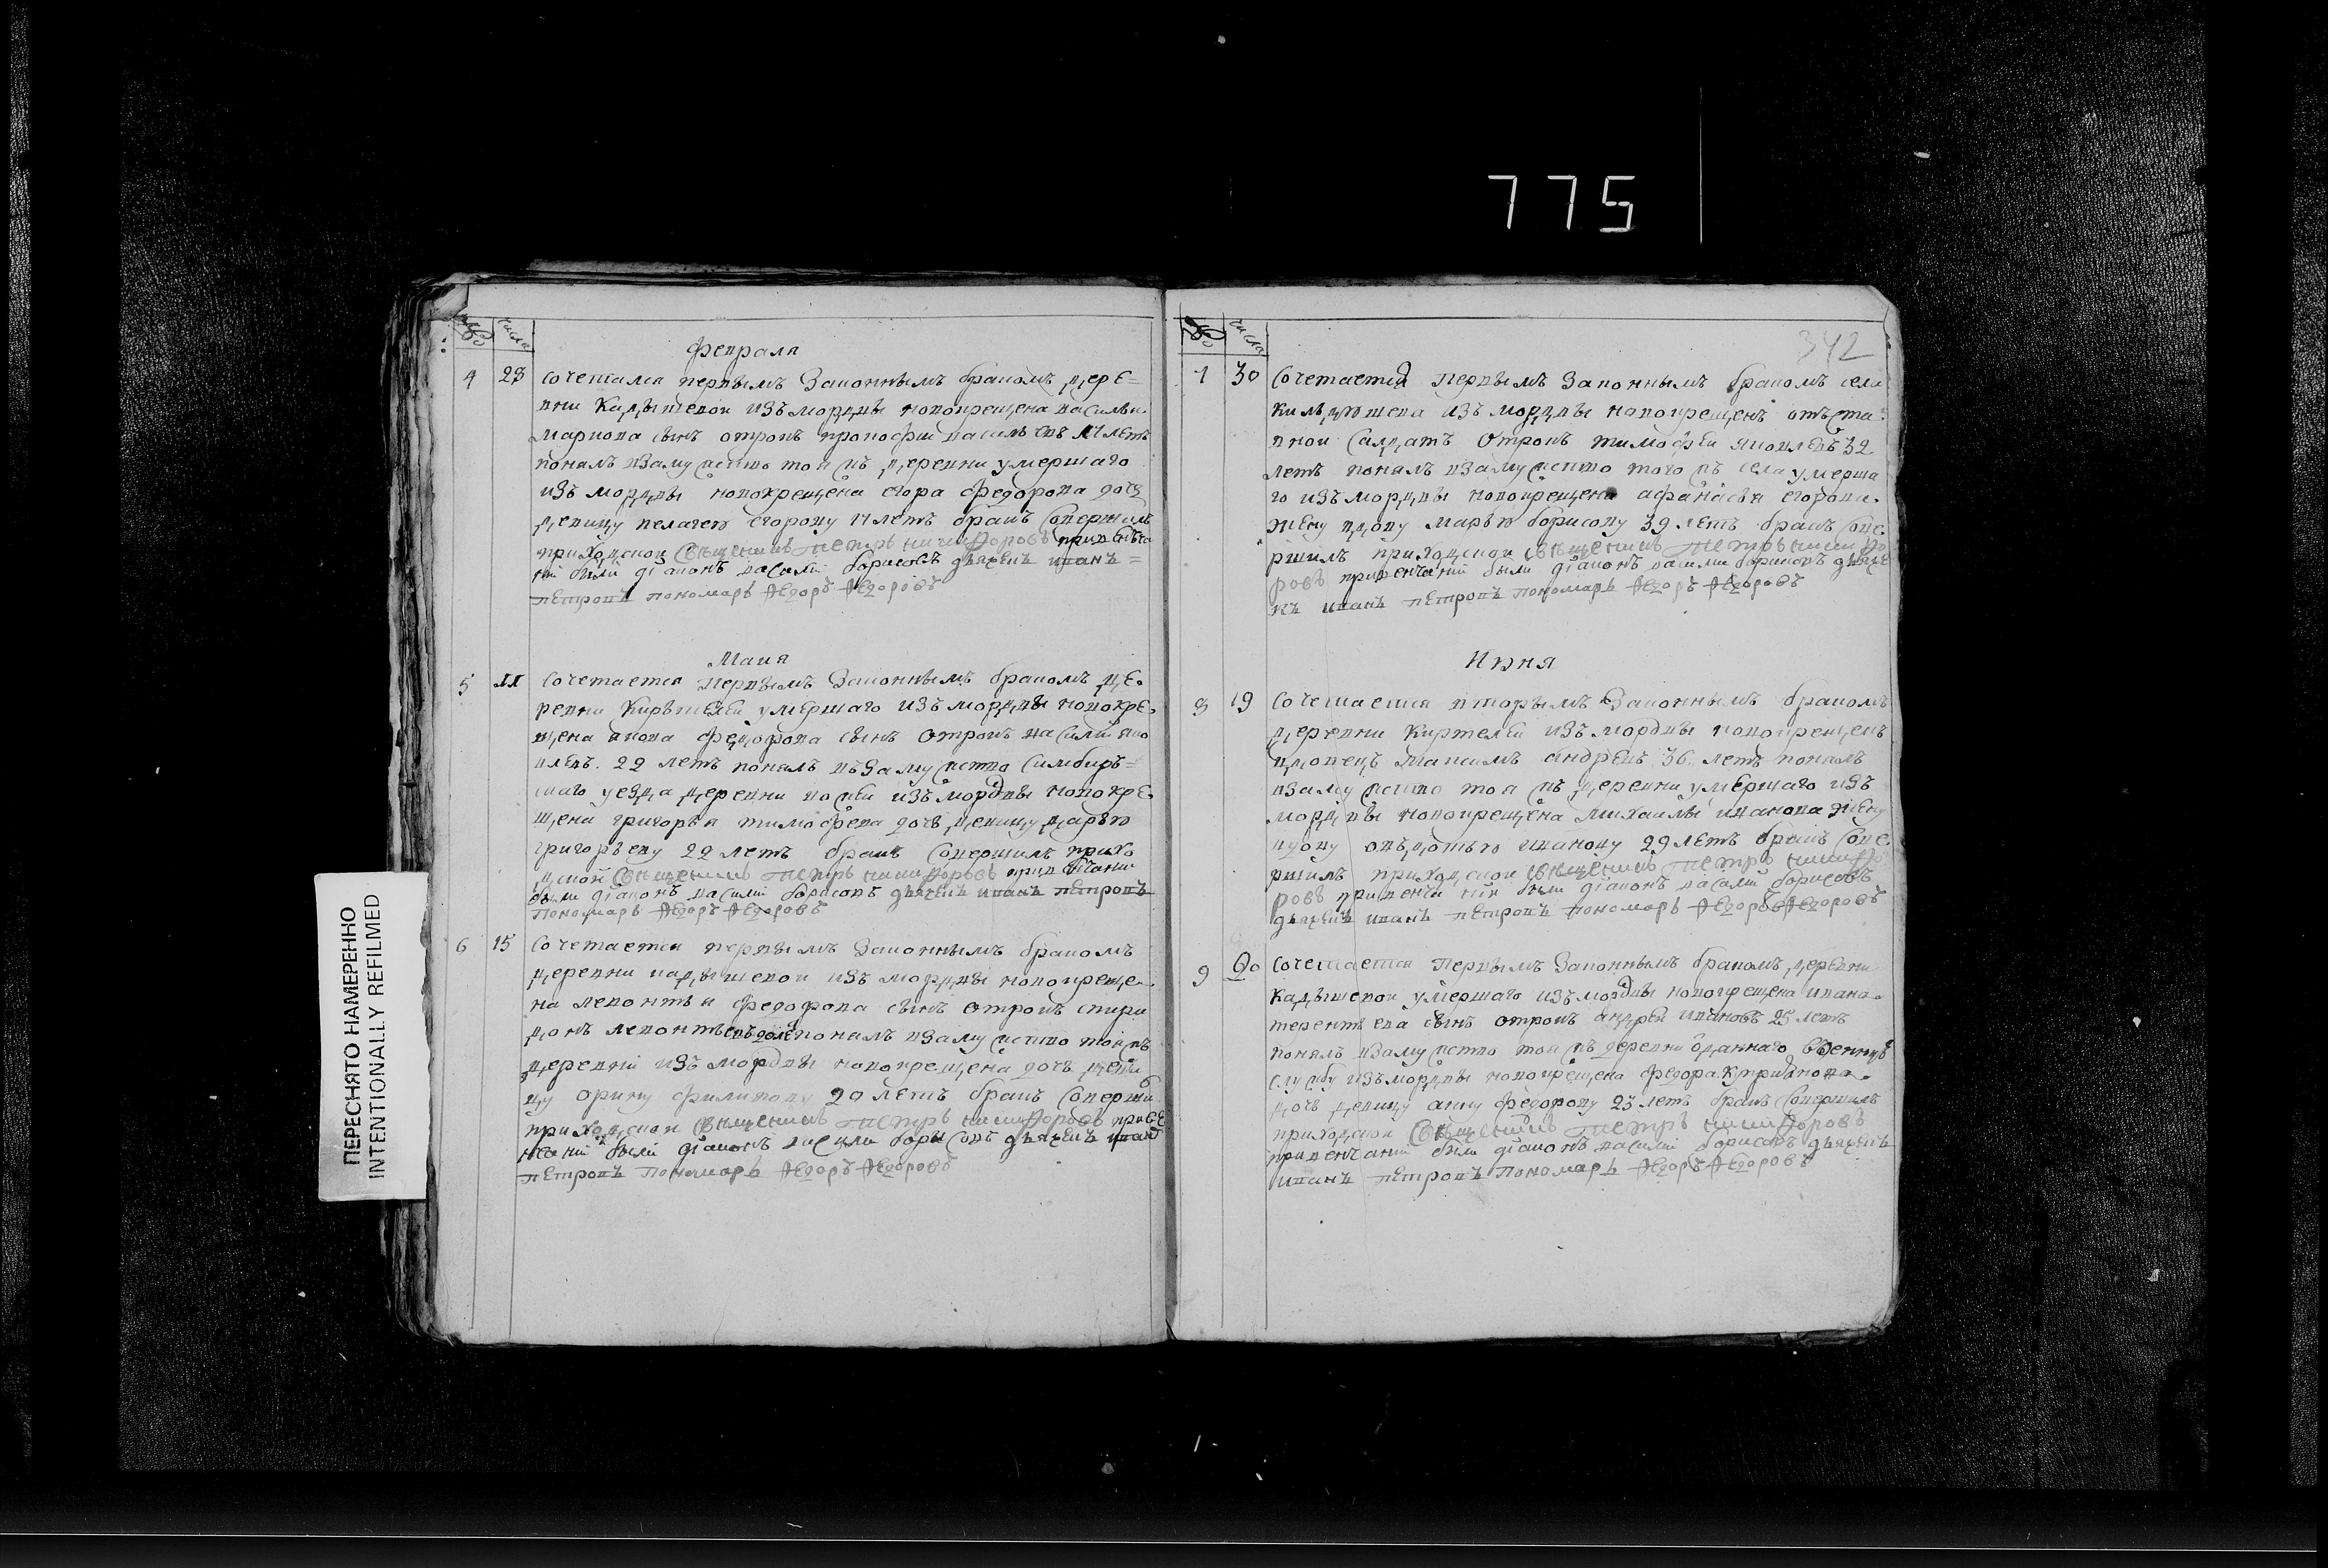 775
ПЕРЕСНЯТО НАМЕРЕННО
INTENTIONALLY REFILMED
числа
Февраля
4 28 Сочетался первымъ Законнымъ бракомъ дере=
вни Кадышевой изъ мордвы новокрещена василья
маркова сынъ отрокъ прокофеи васильевъ летъ
понялъ взамужство той жъ деревни умершаго
изъ мордвы новокрещена егора федорова дочь
девицу пелагею егорову 17 летъ бракъ совершилъ
приходской священникъ петръ никифоровъ при венча
нии были діаконъ василий борисовъ дьячекъ иванъ =
петровъ пономарь федоръ федоровъ
Маия
5 Сочетается Первымъ Законнымъ бракомъ де
ревни умершаго изъ мордвы новокре
щена якова федорова сынъ отрокъ василий яко
влевъ 22 летъ понялъ въ замужство Симбирь=
скаго уезда деревни изъ мордвы новокре
щена григорья тимофеева дочь девицу дарью
григорьеву 22 летъ бракъ совершилъ прихо
дской священникъ петръ никифоровъ при венчании
были діаконъ василий борисовъ дьячекъ иванъ петровъ
пономарь федоръ федоровъ
6 15 Сочетается первымъ Законнымъ бракомъ
деревни кадышевой изъ мордвы новокреще
на леонтья федорова сынъ отрокъ спири
донъ леонтьевъ понялъ взамужство той жъ
деревни изъ мордвы новокрещена дочь деви
цу орину филипову 20 летъ бракъ соверши
приходской священникъ петръ никифоровъ при ве
нчании были діаконъ василий борисовъ дьячекъ иванъ
петровъ пономарь федоръ федоровъ
числа
342
7 30 Сочетается Первымъ Законнымъ бракомъ села
кильдюшева изъ мордвы новокрещенъ отъста
вной салдатъ отрокъ тимофеи яковлевъ 32
летъ понялъ взамужство того жъ села умерша
го изъ мордвы новокрещена афанасья егорова
жену вдову марью борисову 39 летъ бракъ сове
ршилъ приходской священникъ петръ никифо
ровъ привенчании были діаконъ василий борисовъ дьяче
къ иванъ петровъ пономарь федоръ федоровъ
Июня
8 19 Сочетается вторымъ Законнымъ бракомъ
деревни Киртелей изъ мордвы новокрещенъ
вдовецъ максимъ андреевъ 36 летъ понялъ
взамужство тоя жъ деревни умершаго изъ
мордвы новокрещена михаилы иванова жену
вдову овдотью иванову 29 летъ бракъ сове
ршилъ приходской священникъ петръ никифо
ровъ привенчании были діаконъ василий борисовъ
дьячекъ иванъ петровъ пономарь федоръ федоровъ
9 20 Сочетается Первымъ Законнымъ бракомъ деревни
Кадышевой умершаго изъ мордвы новокрещена ивана
терентьева сынъ отрокъ андрей ивановъ 25 летъ
понялъ взамужство тоя жъ деревни оданнаго ввоенную
службу изъ мордвы новокрещена федора куприянова
дочь девицу анну федорову 23 летъ бракъ совершилъ
приходской священникъ петръ никифоровъ
привенчании были діаконъ василий борисовъ дьячекъ
иванъ петровъ пономарь федоръ федоровъ